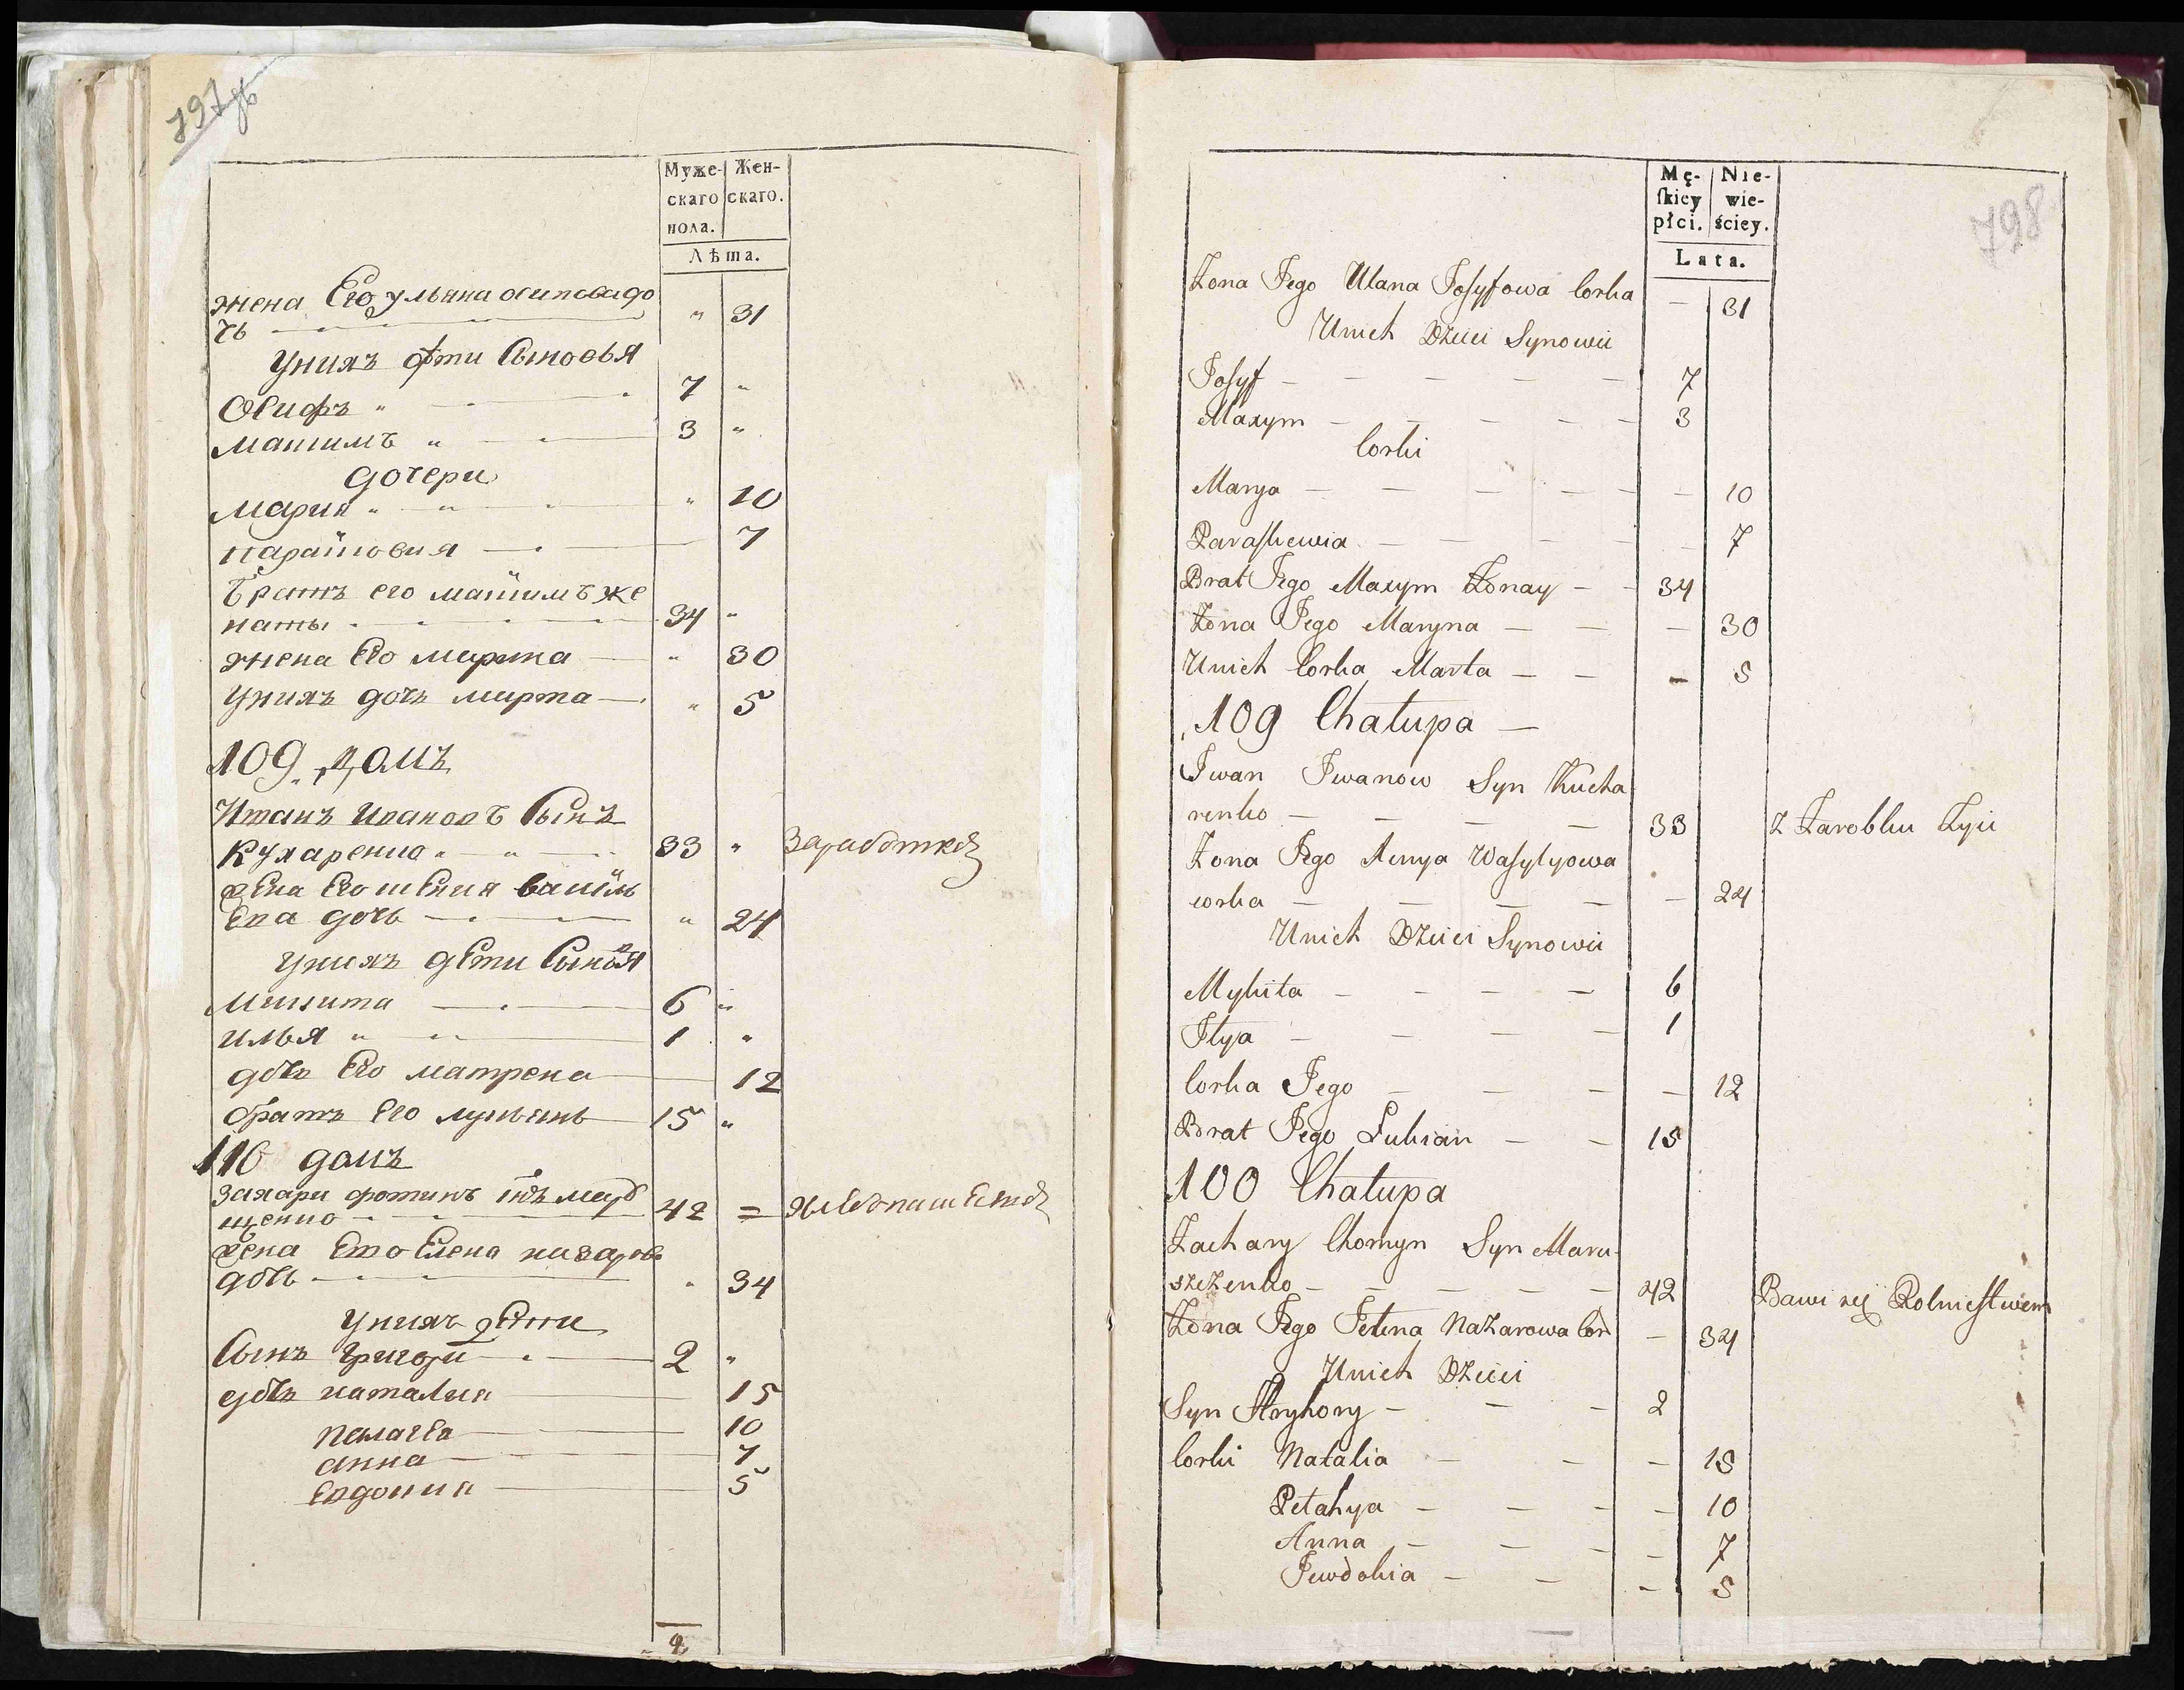 797 об
Муже-
скаго
пола.
Жен-
скаго.
Лѣта.
жена Его ульяна осиповадо
чь " 31
Унихъ дѣти Сыновья
Осифъ " 7 "
Макимъ " 3 "
дочери
Мария " " 10
парасковия 7
Братъ его макимъ же
наты 34 "
жена Его марина " 30
Унихъ дочь марта " 5
109 домъ
Иванъ Ивановъ Сынъ
Кухаренко 33 " Заработкой
жена Его
Ева дочь " 24
унихъ дети Сыновья
Микита 6 "
илья " 1 "
дочь Его матрена 12
братъ Его лукьянъ 15 "
110 домъ
Захари фотинъ
щенко 42 = хлебопашествомъ
жена Его Елена назарова
дочь " 34
Унихъ дети
Сынъ Григорѝ 2 "
дочь наталия 15
пелагея 10
анна 7
Евдокия 5
798
Mę-
ſkiey
płci.
Nie-
wie-
ściey.
Lata.
Żona Jego Ulana Josyfowa Corka — 31
Unich Dzieci Synowie
Josyf — — — — — 7
Maxym — — — — — 3
Corki
Marya — — — — — — 10
Paraskewia — — — — — 7
Brat Jego Maxym Żonay — — 34
Żona Jego Maryna — — — 30
Unich Corka Marta — — — 5
109 Chałupa —
Iwan Iwanow Syn Kucha
renko — — — — 33 Z Zarobku Żyie
Żona Jego Xenya Wasylyowa
corka — — — — — 24
Unich Dzieci Synowie
Mykita — — — — 6
Ilya — — — — 1
Corka Jego — — — — 12
Brat Jego Lukian — — 15
100 Chałupa
Zachary Chomyn Syn Maru
szczenko — — — — — 42 Bawi się Rolnictwem
Żona Jego Jelena Nazarowa Cor — 34
Unich Dzieci
Syn Hryhory — — — 2
Corki Natalia — — — 15
Pelahya — — — — 10
Anna — — — — 7
Jewdokia — — — 5